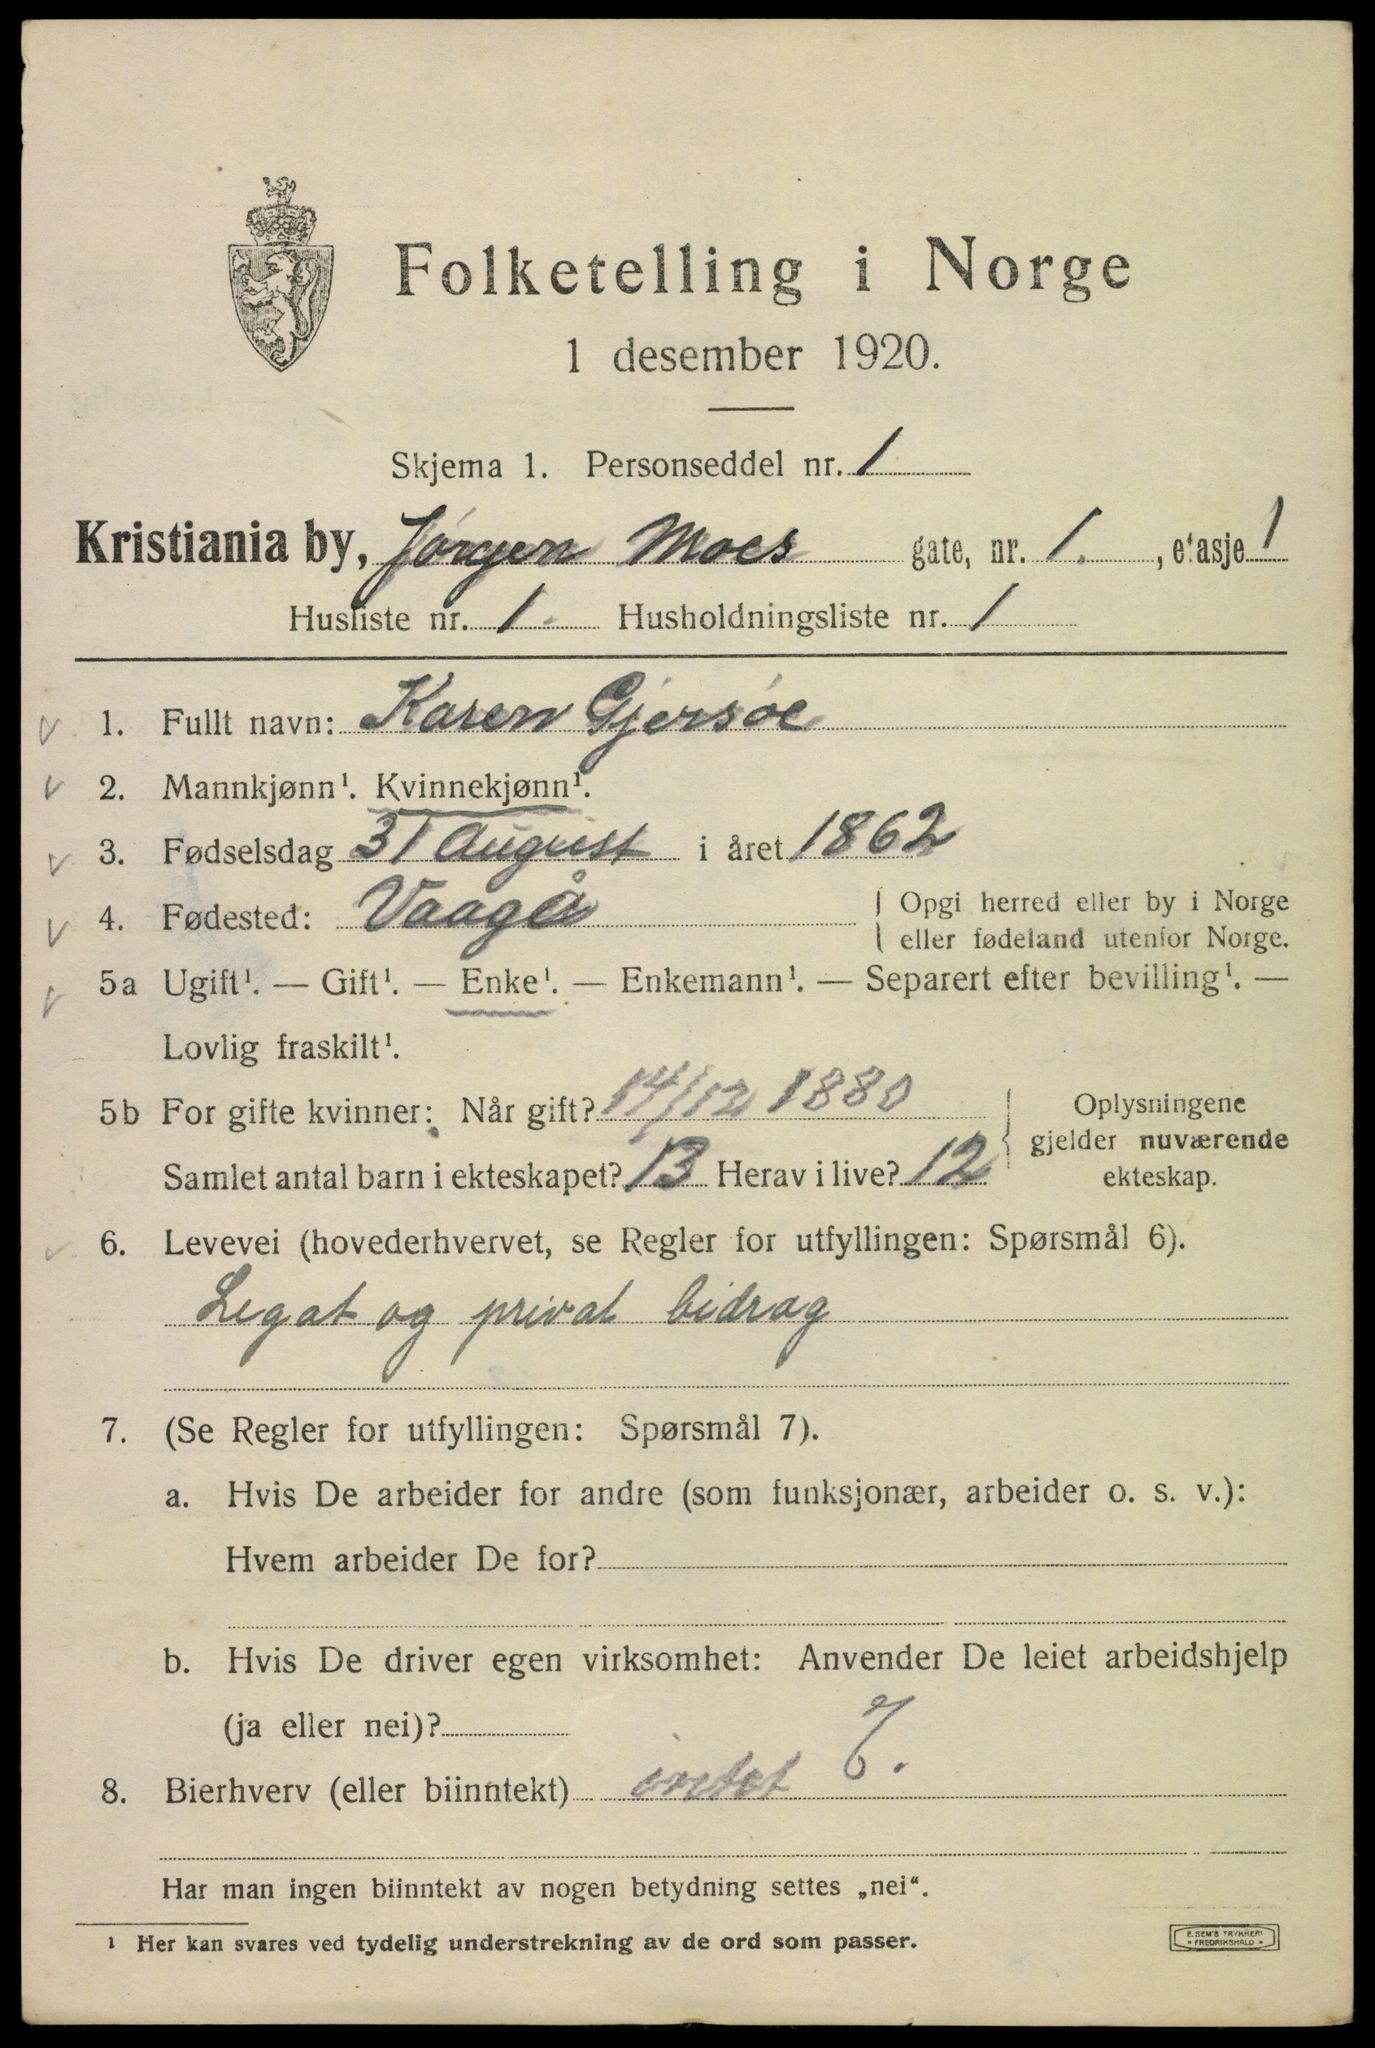 Folketelling i Norge
1 desember 1920.
Skjema 1. Personseddel nr. 1
Kristiania by, Jørgen Moes gate, nr. 1. , etasje 1
Husliste nr. 1. Husholdningsliste nr. 1
1. Fullt navn: Karen Gjersøe
2. Mannkjønn¹. Kvinnekjønn¹.
3. Fødselsdag 31 August i året 1862
4. Fødested: Vaagå { Opgi herred eller by i Norge
eller fødeland utenfor Norge.
5a Ugift¹. — Gift¹. — Enke¹. — Enkemann¹. — Separert efter bevilling¹. —
Lovlig fraskilt¹.
5b For gifte kvinner: Når gift? 14/12 1880
Samlet antal barn i ekteskapet? 13 Herav i live? 12
Oplysningene
gjelder nuværende
ekteskap.
6. Levevei (hovederhvervet, se Regler for utfyllingen: Spørsmål 6).
Legat og privat bidrag
7. (Se Regler for utfyllingen: Spørsmål 7).
a. Hvis De arbeider for andre (som funksjonær, arbeider o. s. v.):
Hvem arbeider De for?
b. Hvis De driver egen virksomhet: Anvender De leiet arbeidshjelp
(ja eller nei)?
8. Bierhverv (eller biinntekt) intet
Har man ingen biinntekt av nogen betydning settes „nei“.
¹ Her kan svares ved tydelig understrekning av de ord som passer.
E. SEM'S TRYKKERI
* FREDRIKSHALD *